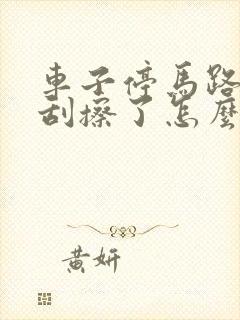 車子停馬路
刮擦了怎麼
黃妍